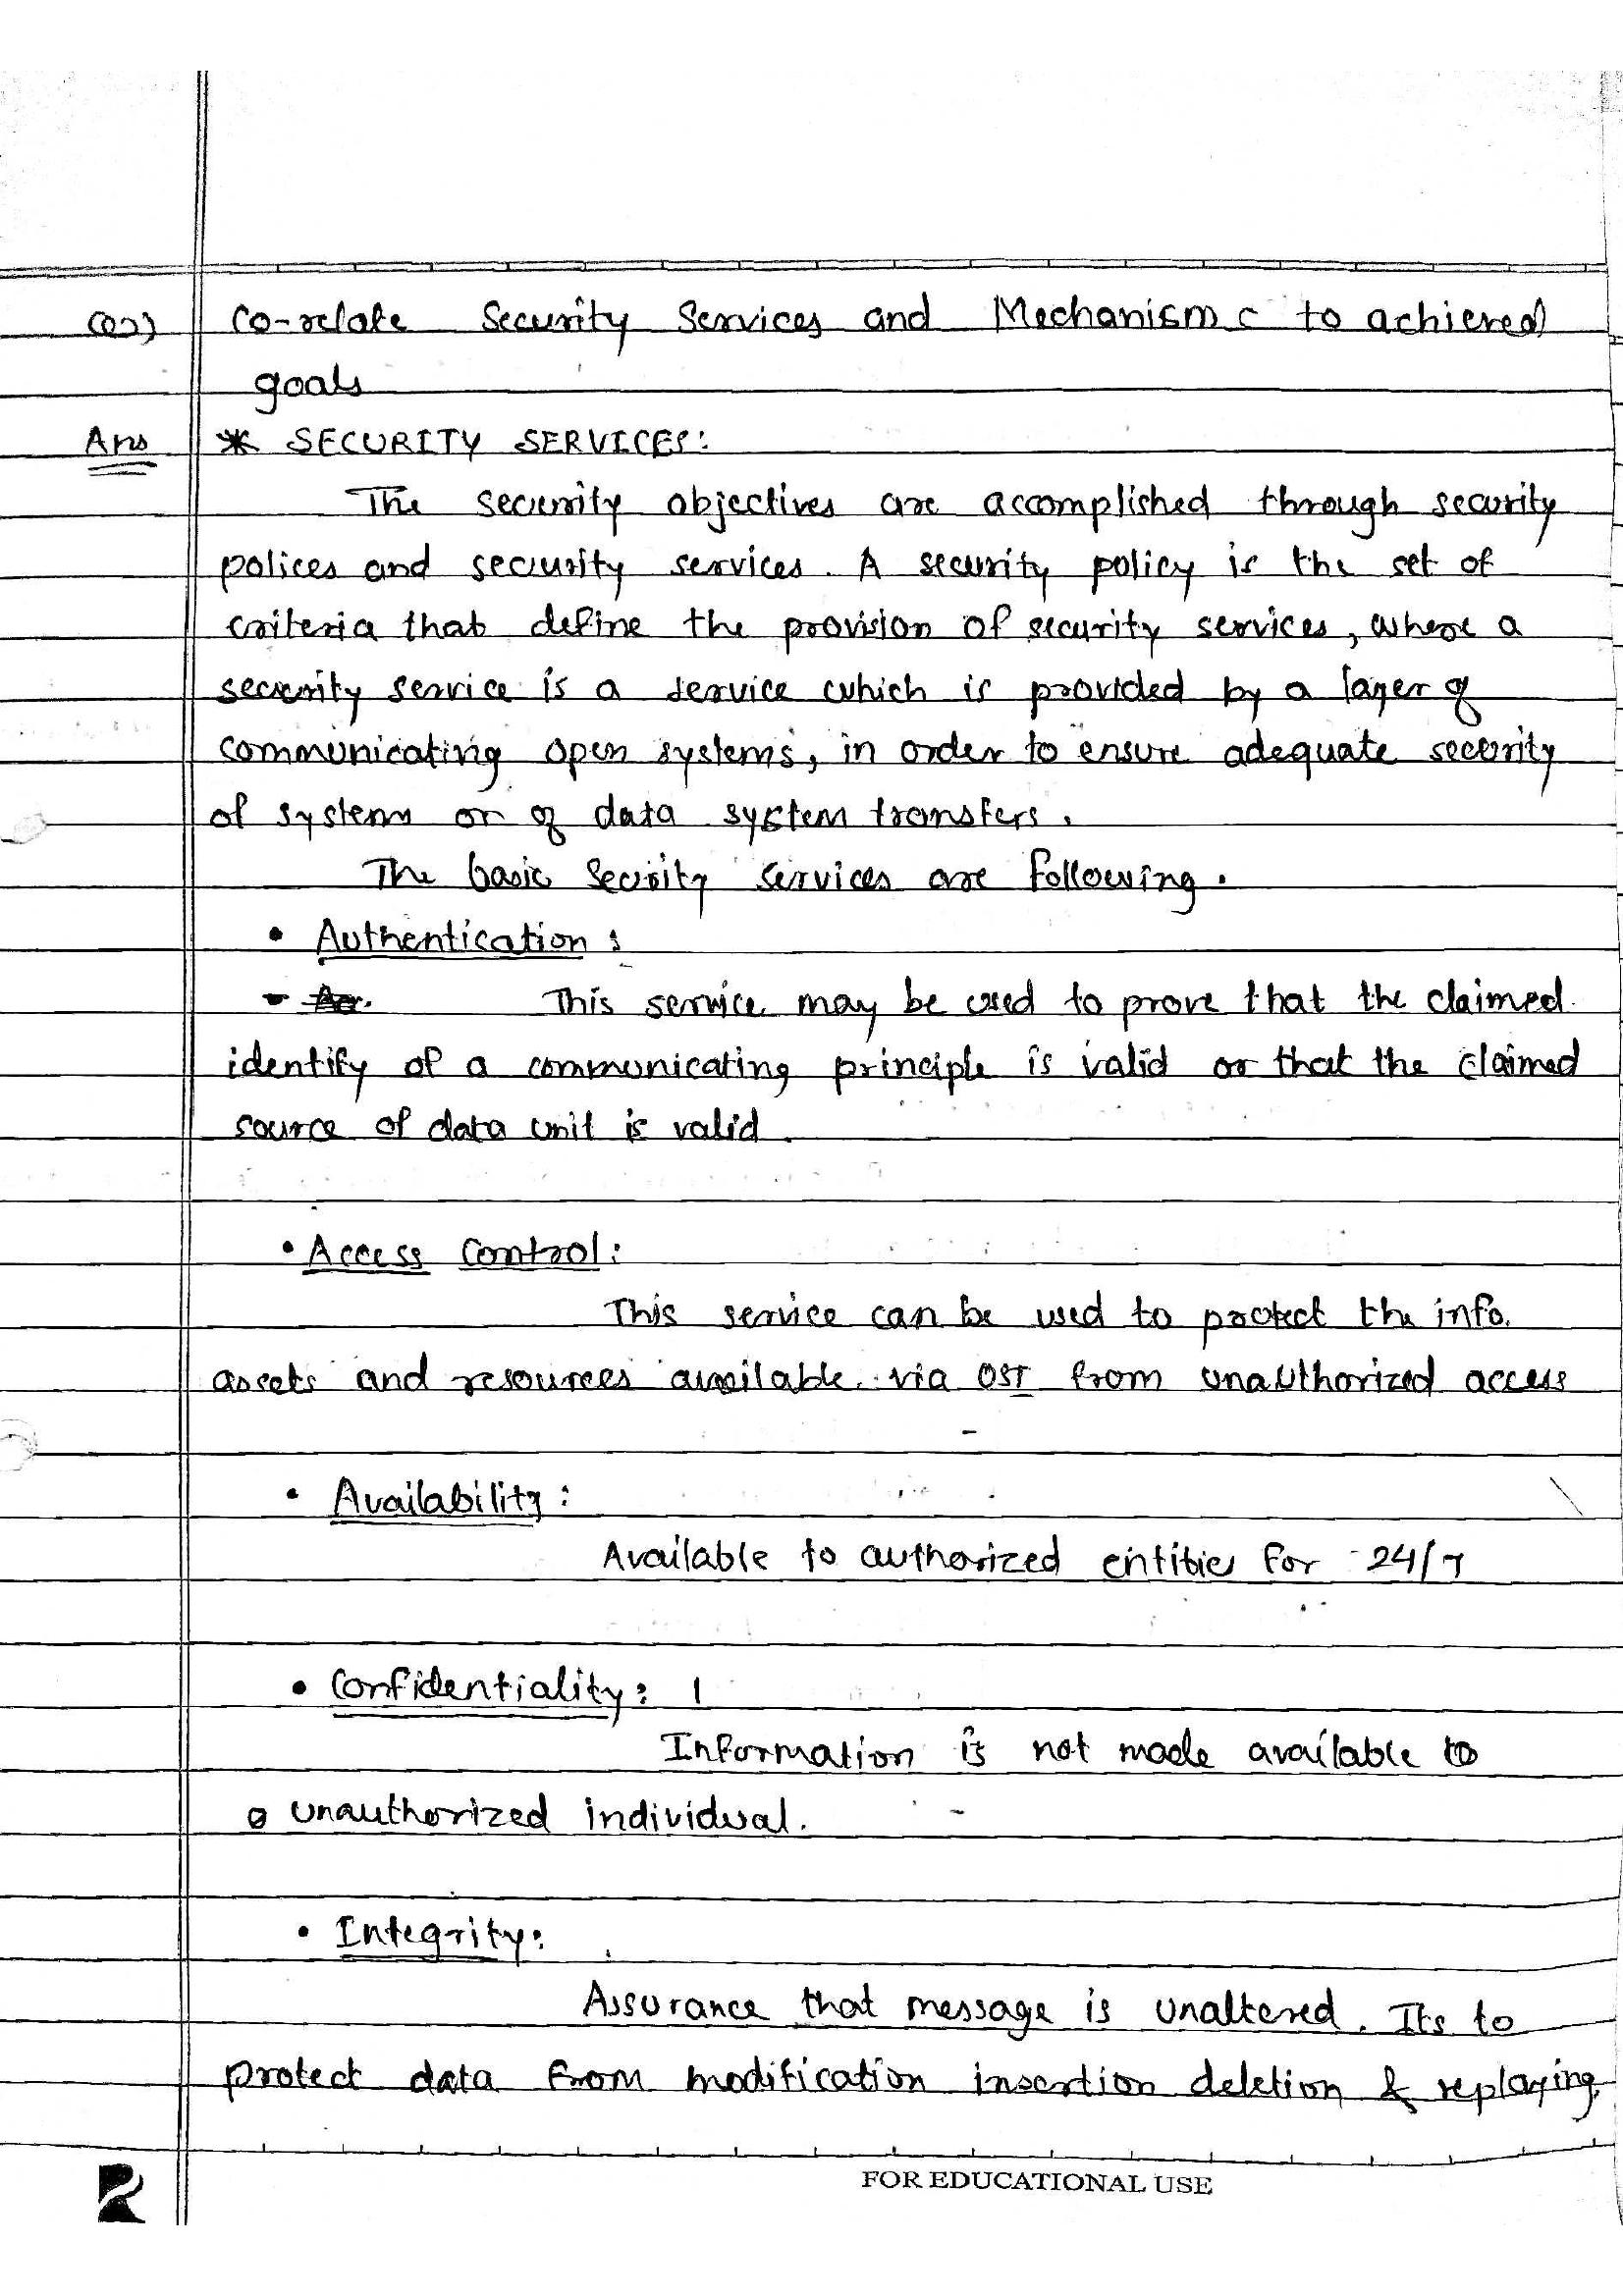 Q2) Co-relate Security Services and Mechanisms to achieved
goals
Ans * SECURITY SERVICES:
The security objectives are accomplished through security
polices and security services. A security policy is the set of
criteria that define the provision of security services, where a
security service is a service which is provided by a layer of
communicating open systems, in order to ensure adequate security
of systems or of data system transfers.
The basic Security services are following.
• Authentication :
- This service may be used to prove that the claimed
identify of a communicating principle is valid or that the claimed
source of data unit is valid
• Access Control:
This service can be used to protect the info.
assets and resources available via OSI from unauthorized access
• Availability :
Available to authorized entities for 24/7
• Confidentiality:
Information is not made available to
unauthorized individual.
• Integrity:
Assurance that message is unaltered. Its to
protect data from modification insertion deletion & replaying
FOR EDUCATIONAL USE